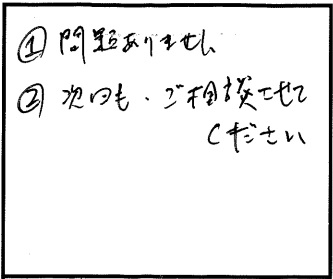 ① 問題ありません
② 次回も、ご相談させて
ください